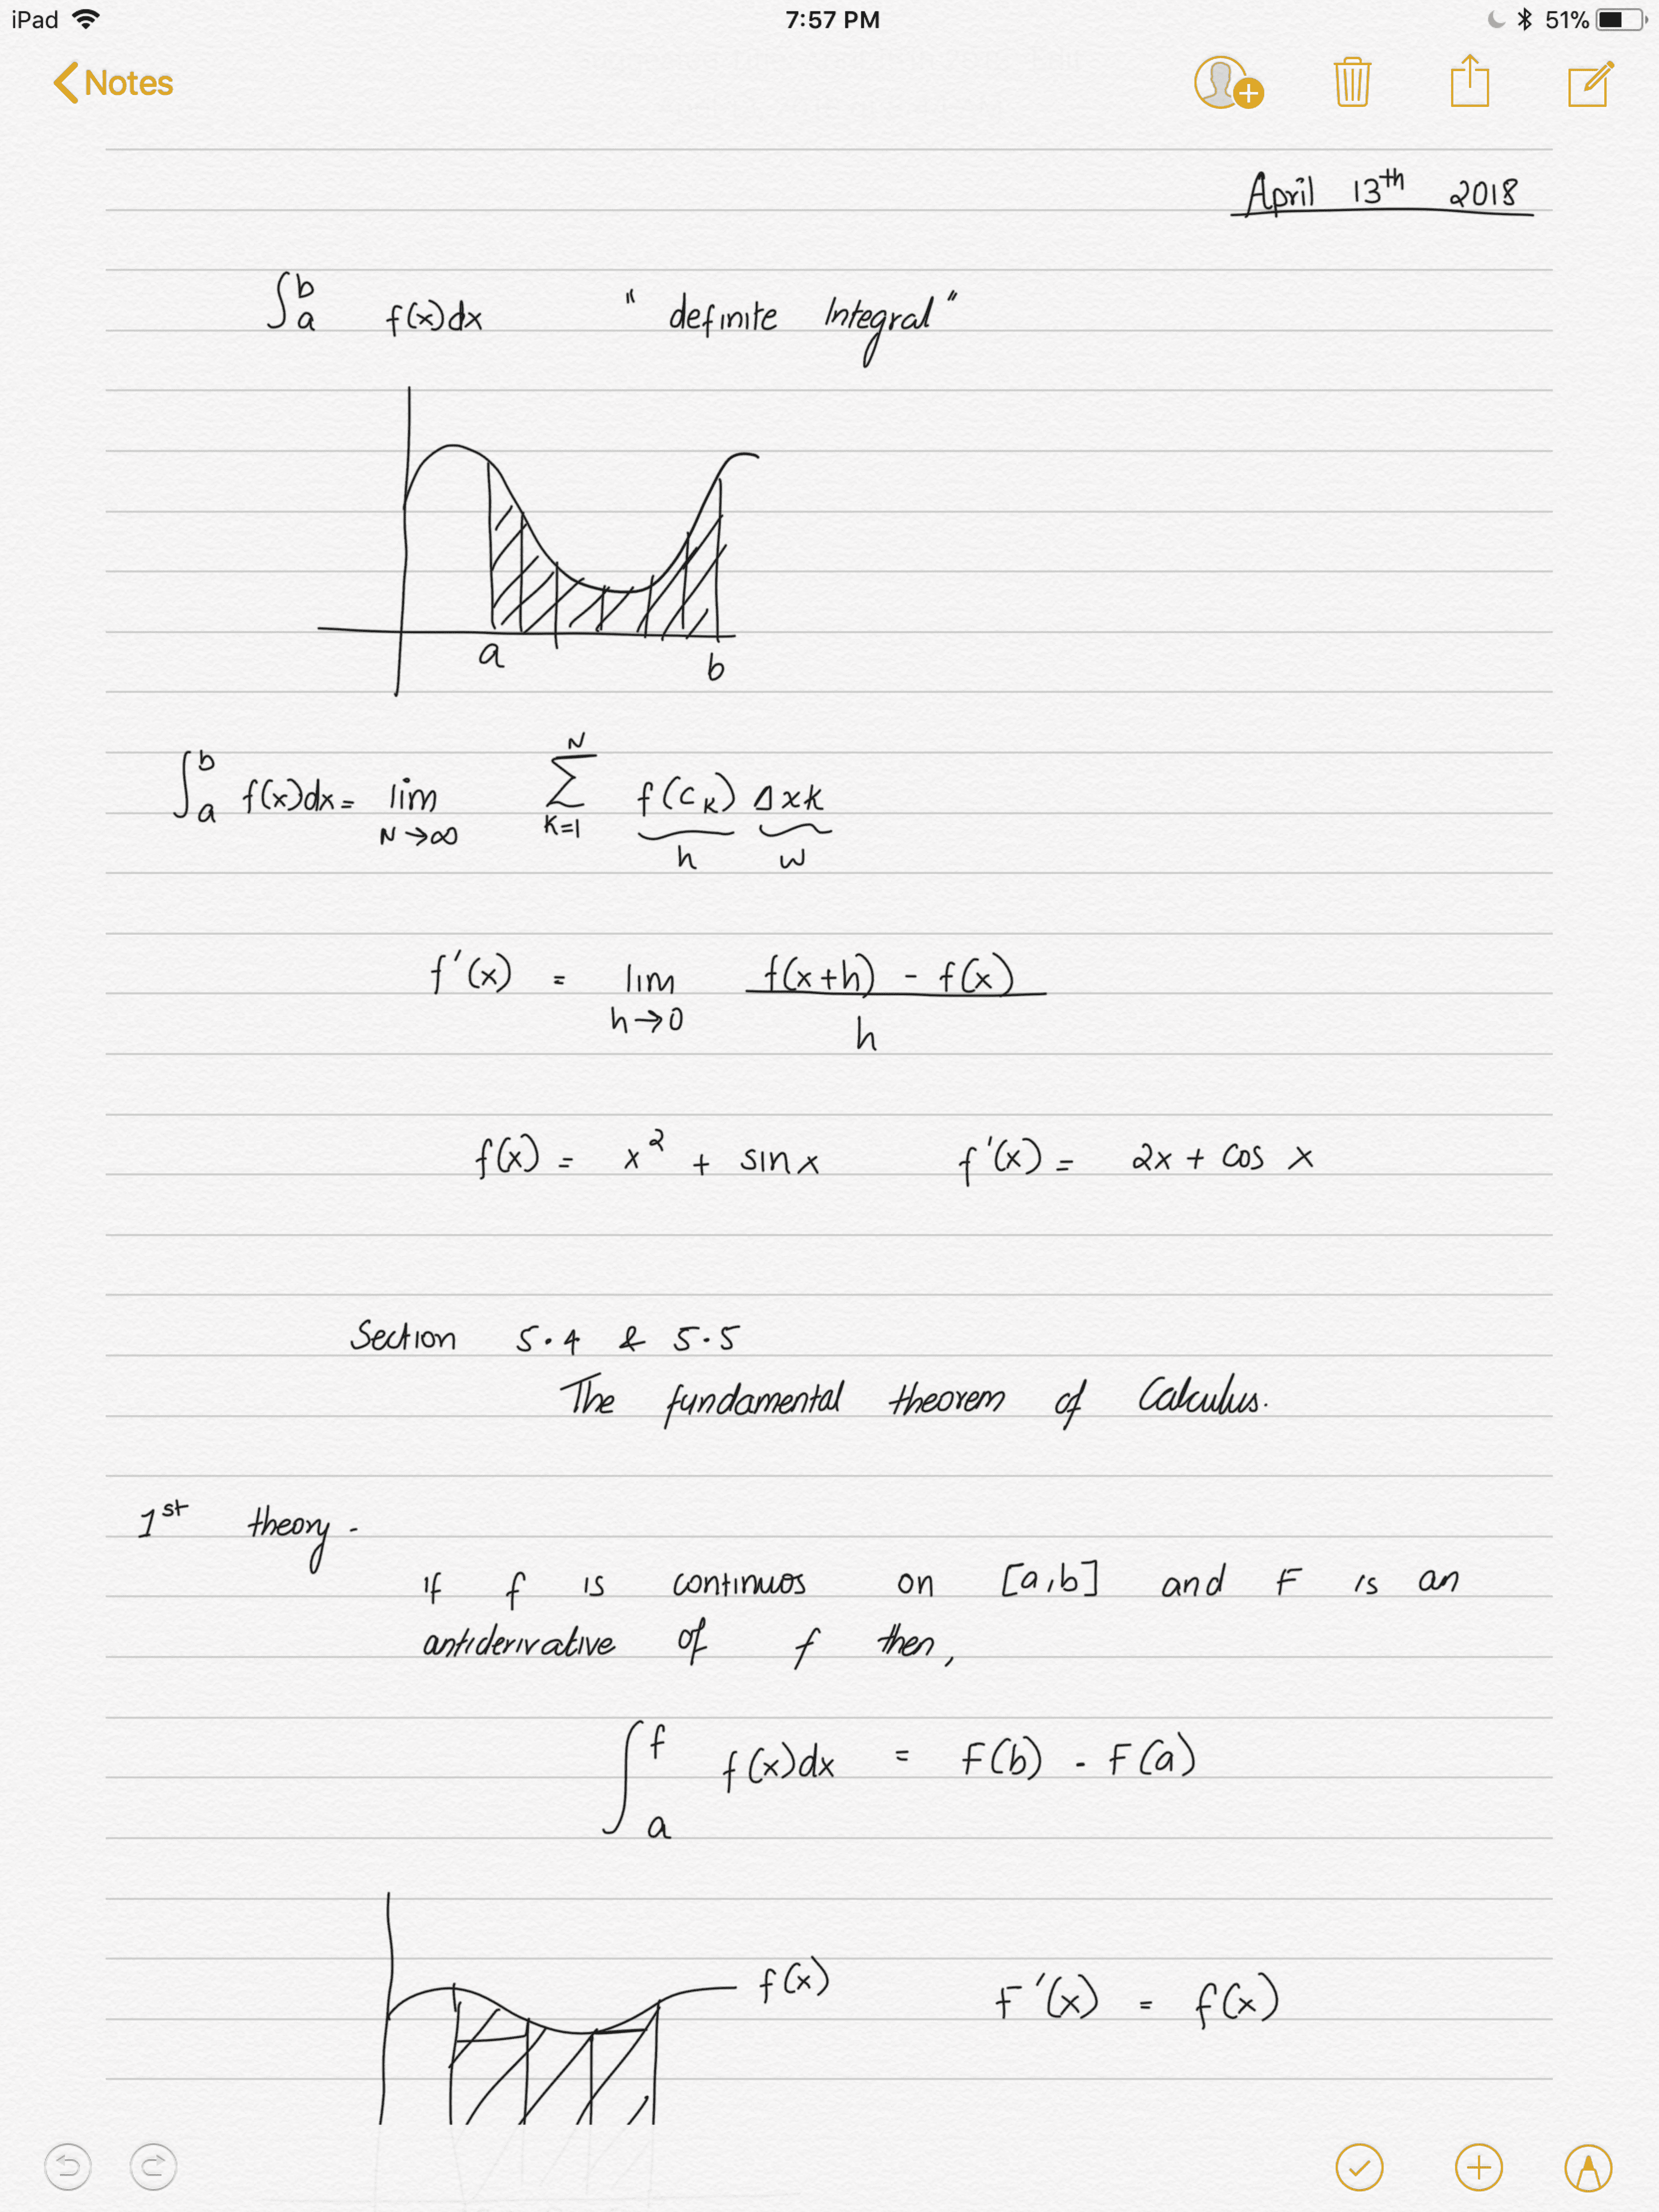 iPad 7:57 PM 51%
Notes
April 13th 2018
∫ₐᵇ f(x)dx " definite Integral "
a b
∫ₐᵇ f(x)dx = lim N→∞ Σ N K=1 f(C_K) Δxk
h w
f'(x) = lim h→0 f(x+h) - f(x) / h
f(x) = x² + sin x f'(x) = 2x + cos x
Section 5.4 & 5.5
The fundamental theorem of Calculus.
1st theory -
If f is continuos on [a,b] and F is an
antiderivative of f then,
∫ₐᶠ f(x)dx = F(b) - F(a)
f(x) F'(x) = f(x)